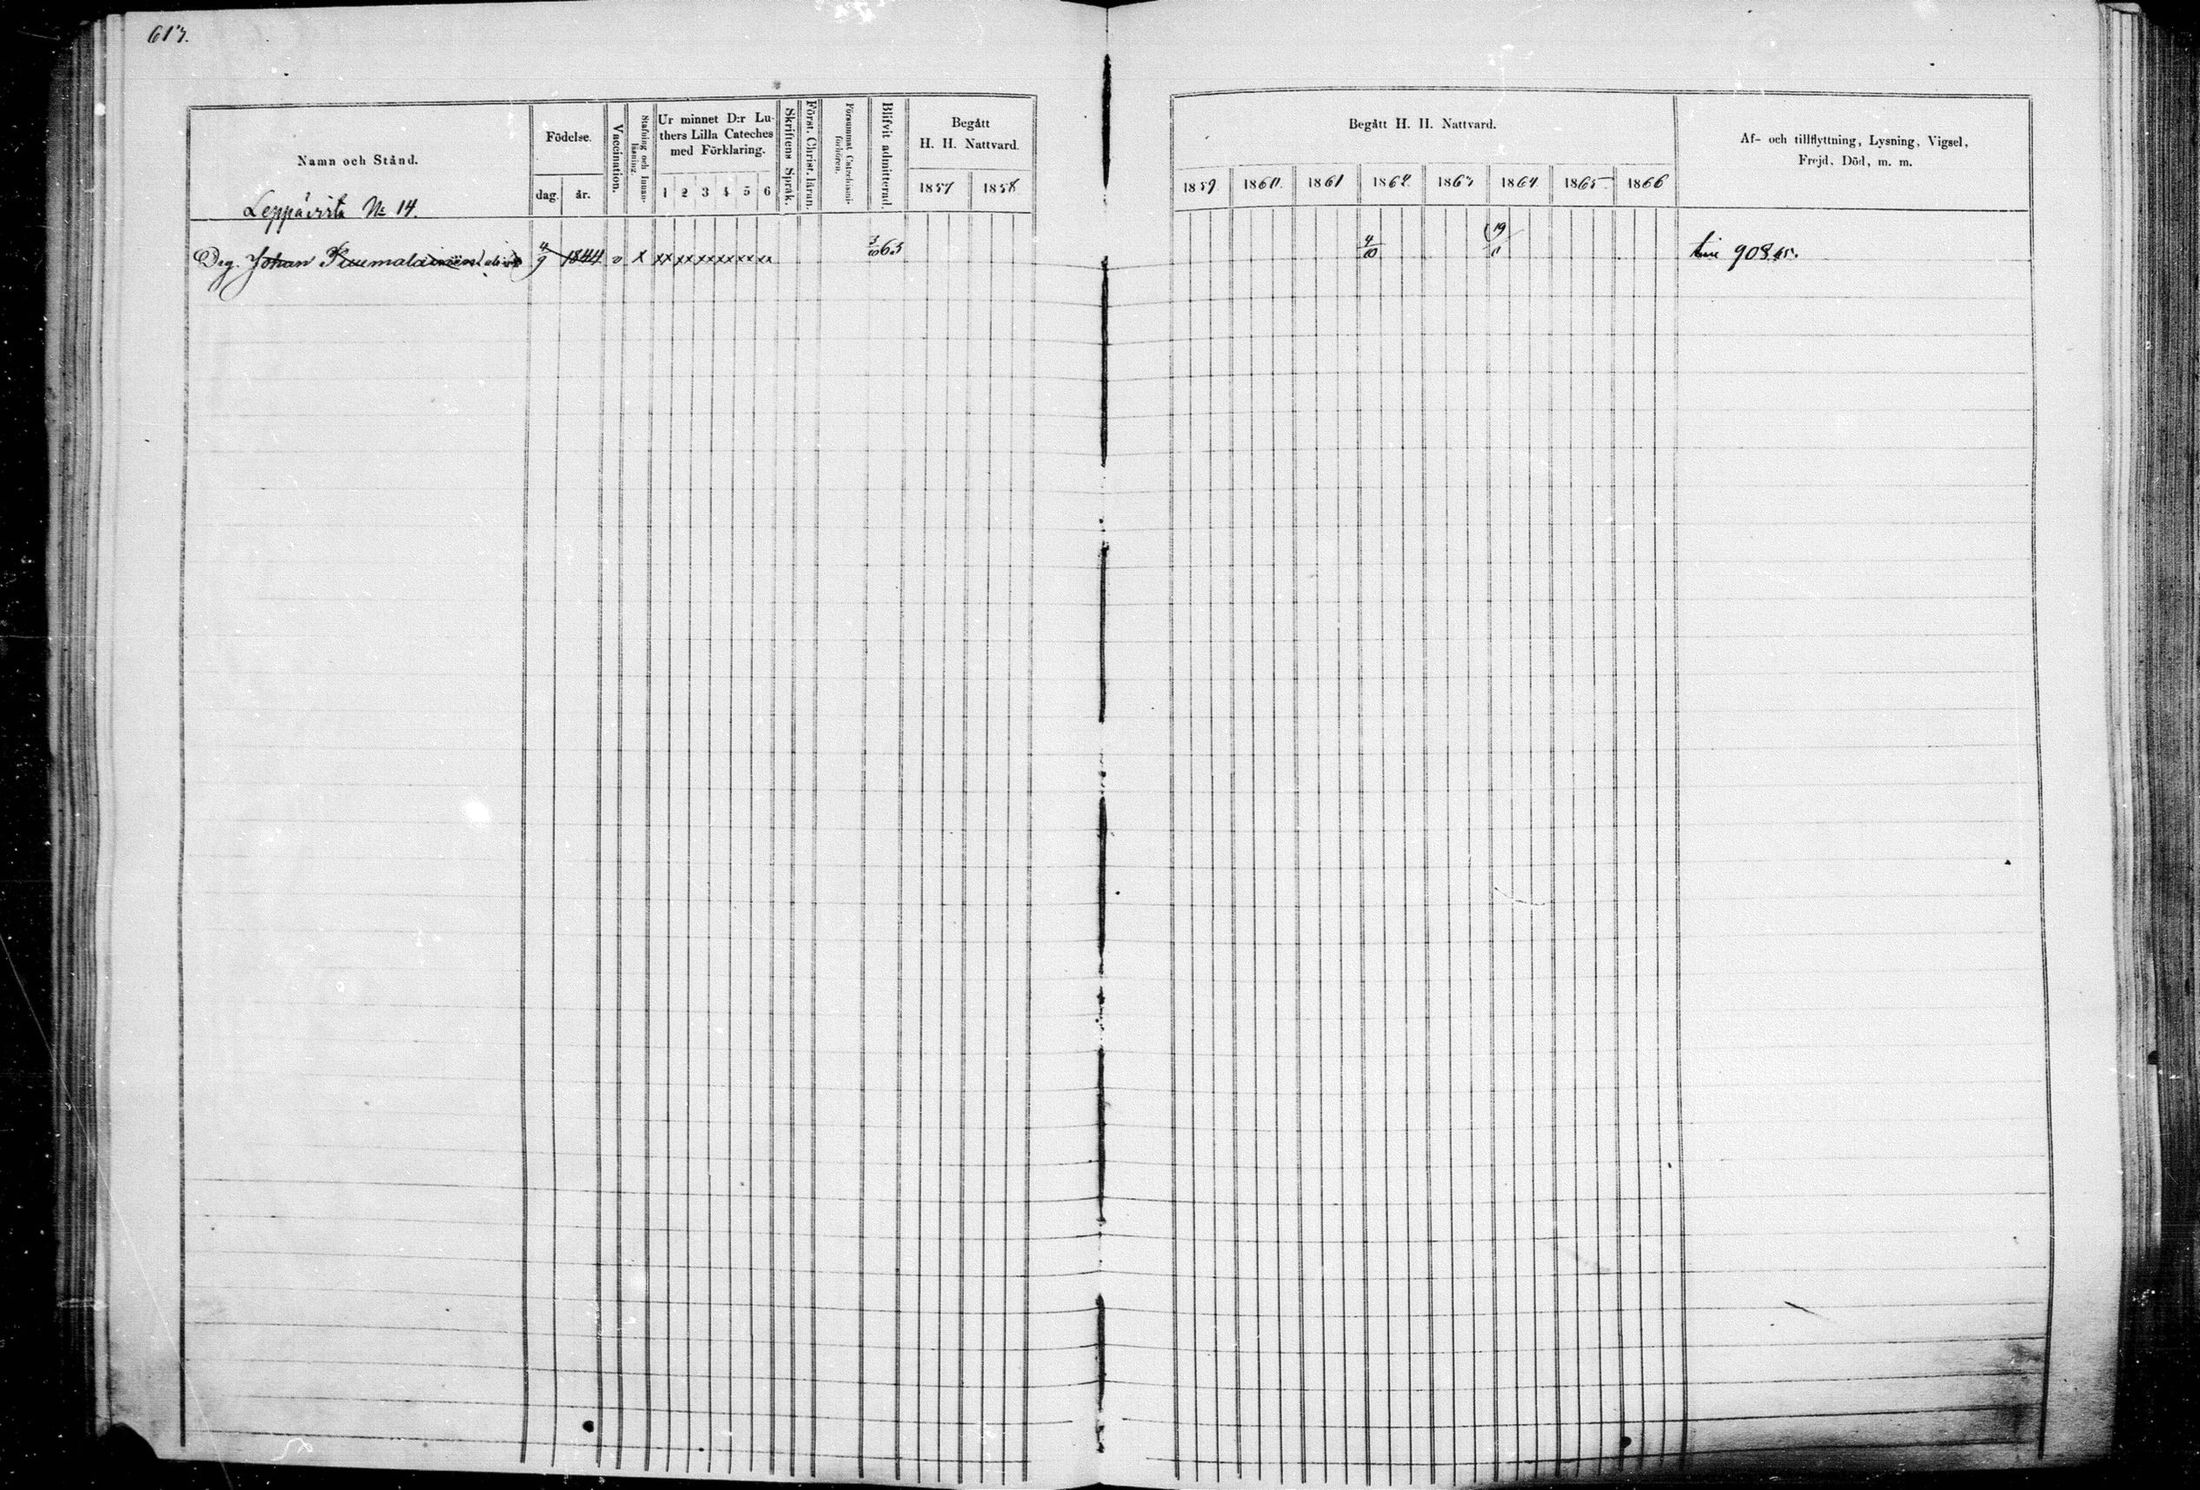 613.
Namn och Stånd.
Födelse.
dag.
år.
Vaccination.
Stafning och Innan-
läsning.
Ur minnet D:r Lu-
thers Lilla Cateches
med Förklaring.
1 2 3 4 5 6
Skriftens Språk.
Först. Christ. läran.
Försummat Catechismi-
förhören.
Blifvit admitterad.
Begått
H. H. Nattvard.
1857 1858
Leppävirta № 14.
Drg. Johan Ruumalainen 4/9 1844 v x xx xx xx xx xx xx 3/10 63
Begått H. H. Nattvard.
1859 1860. 1861 1862. 1863 1864 1865. 1866
Af- och tillflyttning, Lysning, Vigsel,
Frejd, Död, m. m.
4/10 19/11 908.65.